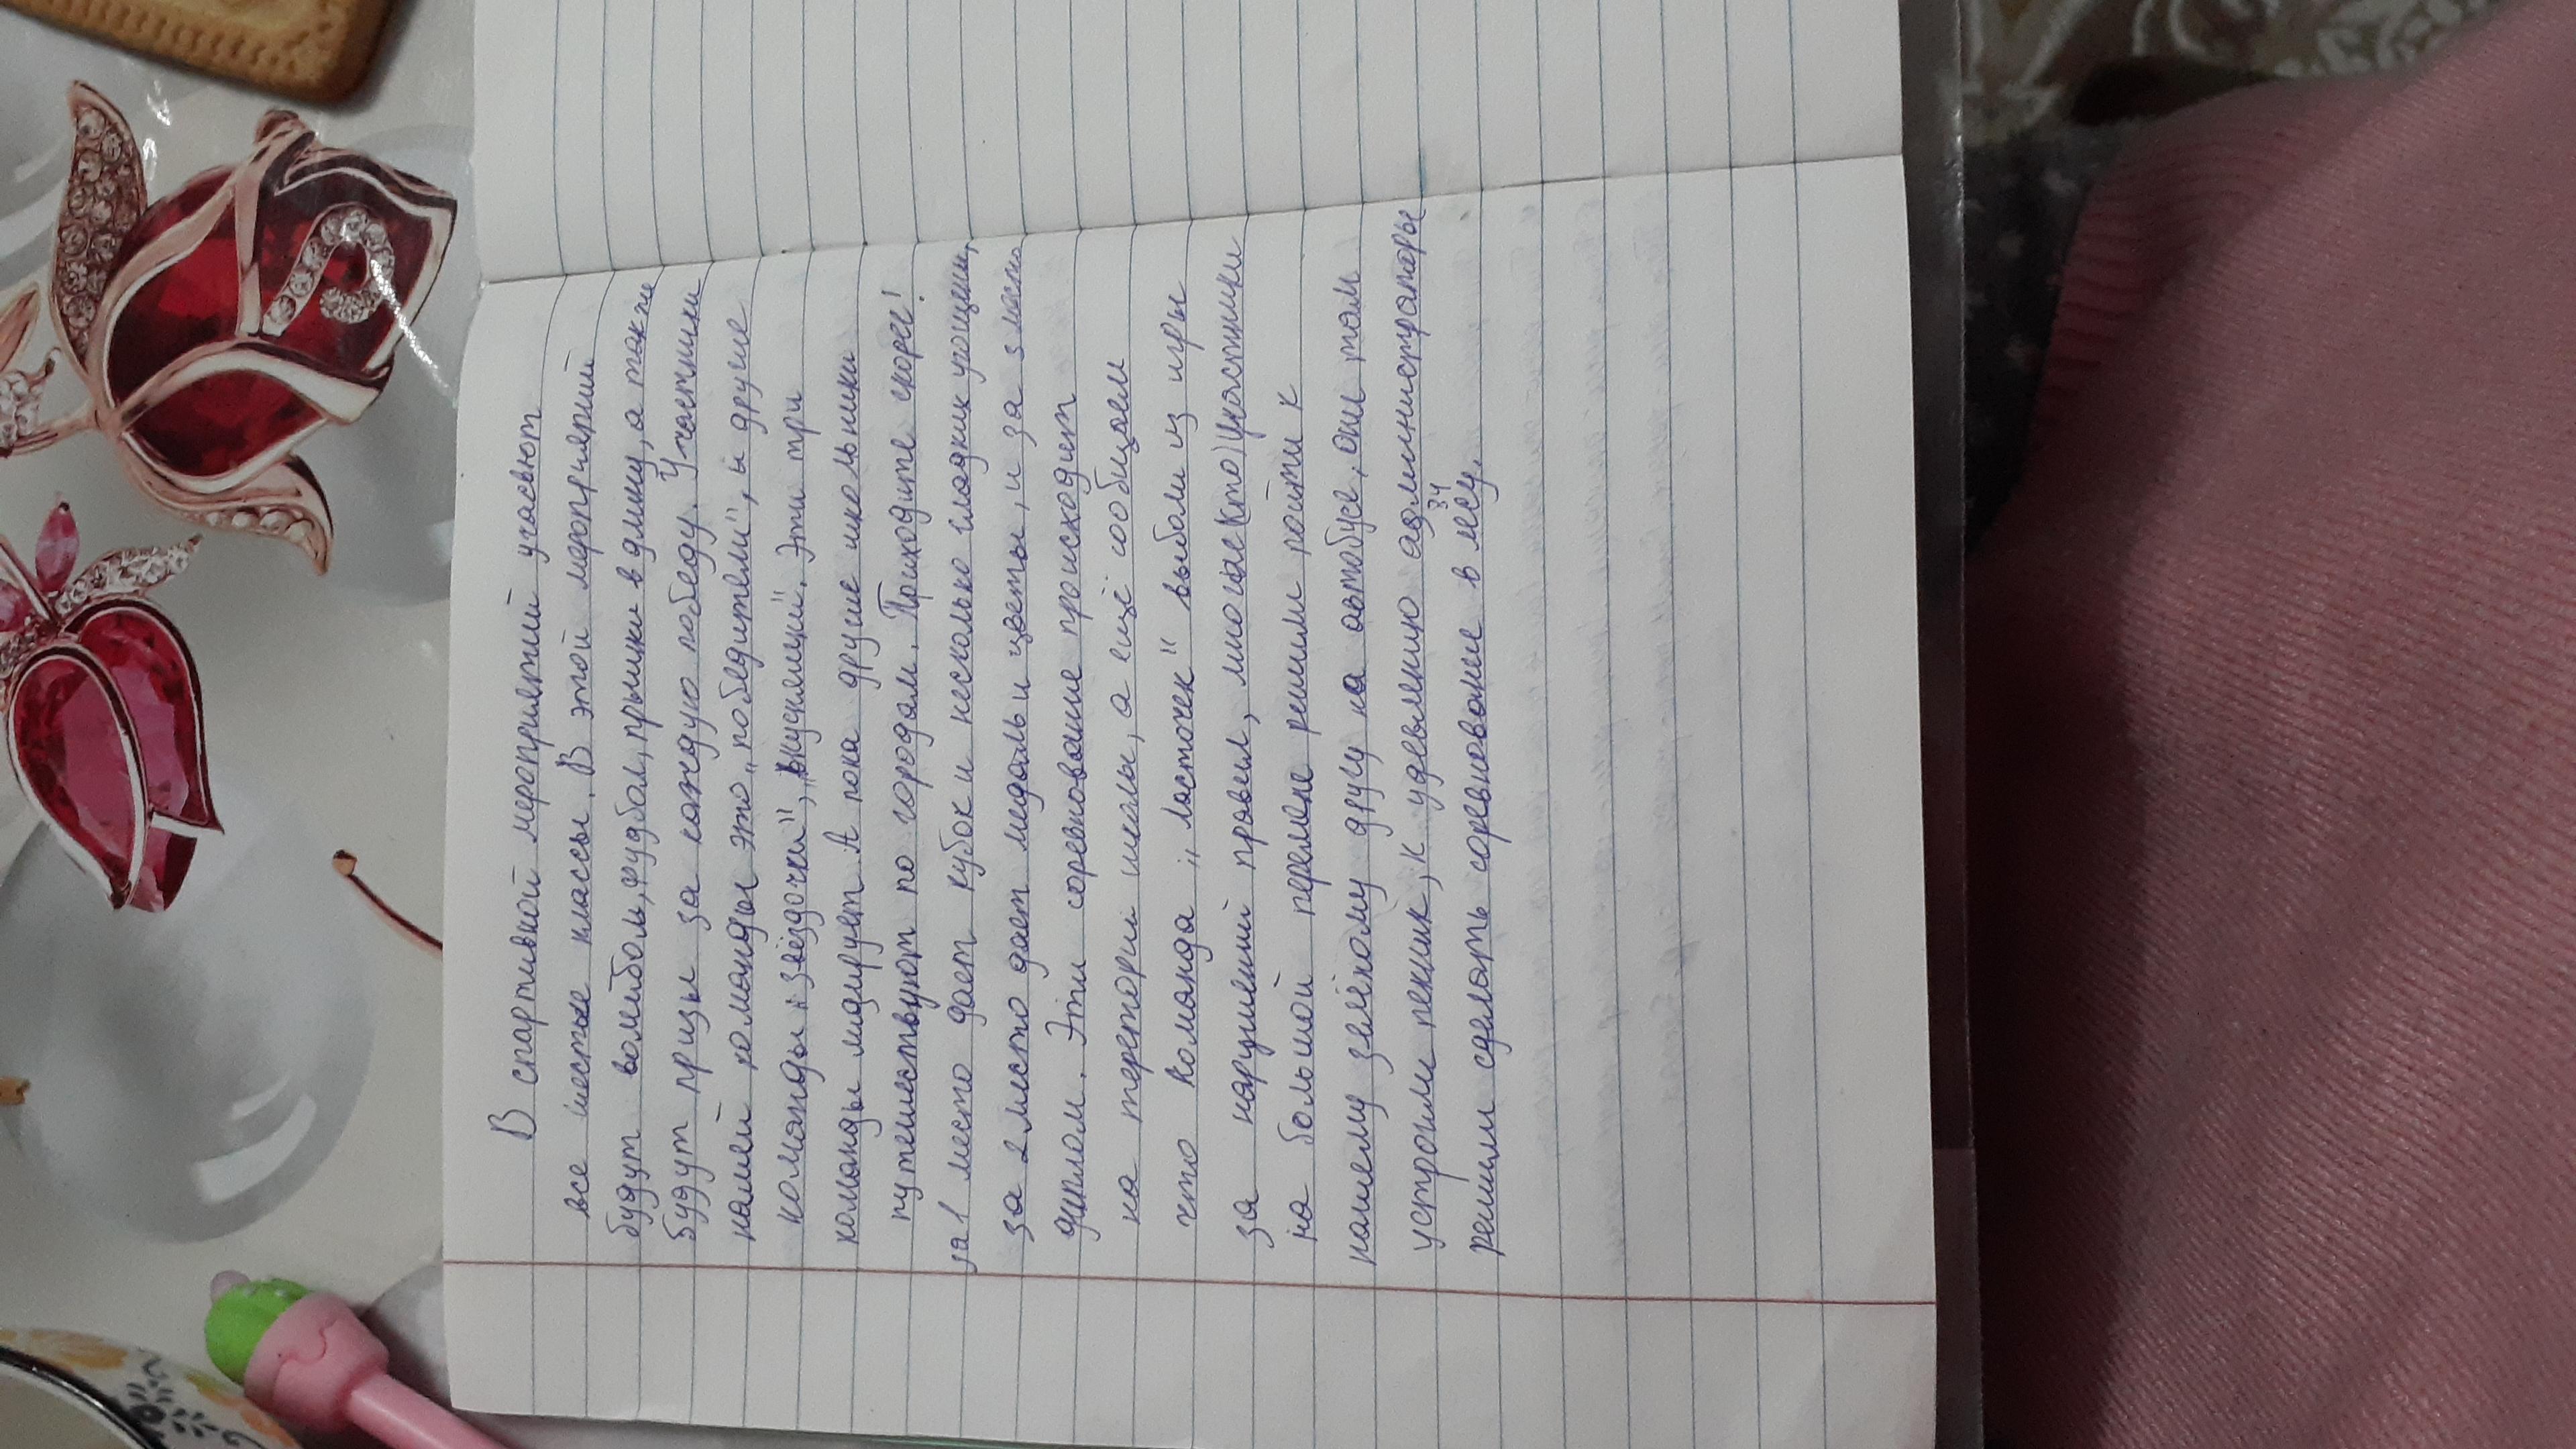 В спартивной мероприятий учасвют
все шестые классы. В этой меропрчярий
будут волейбол, фудбол, прышки в длину, а также
будут призы за каждую победу. Участники
нашей команды это „победители", ы другие
команды „звёздочки", „вкудилищи". Эти три
команды лидирует А пока другие школьники
путешествуют по городам. Приходите скорее!
за 1 место дает кубок и несколько сладких угощени,
за 2 место дает медаль и цветы, и за 3 место
диплом. Эти соревнование происходит
на тереторий школы, а ещё сообщаем
что Команда „Ласточек" выбали из игры
за нарушений правил, многие (кто) участники
на большой перемене решили пойти к
нашему зелёному другу на автобусе, они там
устроили пекник, к удевлению администраторы
решили сделать соревнование в лесу.
34